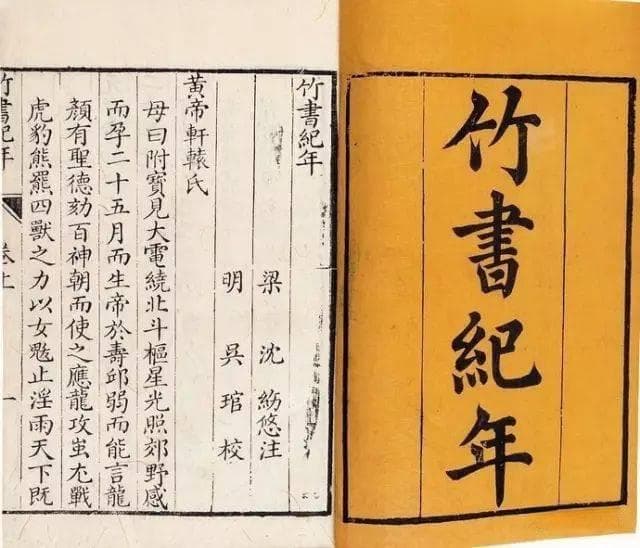 竹書紀年
竹書紀年
梁 沈 約悠注
明 吳 琯 校
黄帝軒轅氏
母曰附寶見大電繞北斗樞星光照郊野感
而孕二十五月而生帝於壽邱弱而能言龍
顔有聖德劾百神朝而使之應龍攻蚩尤戰
虎豹熊羆四獸之力以女魃止淫雨天下既
竹書紀年 卷上 一